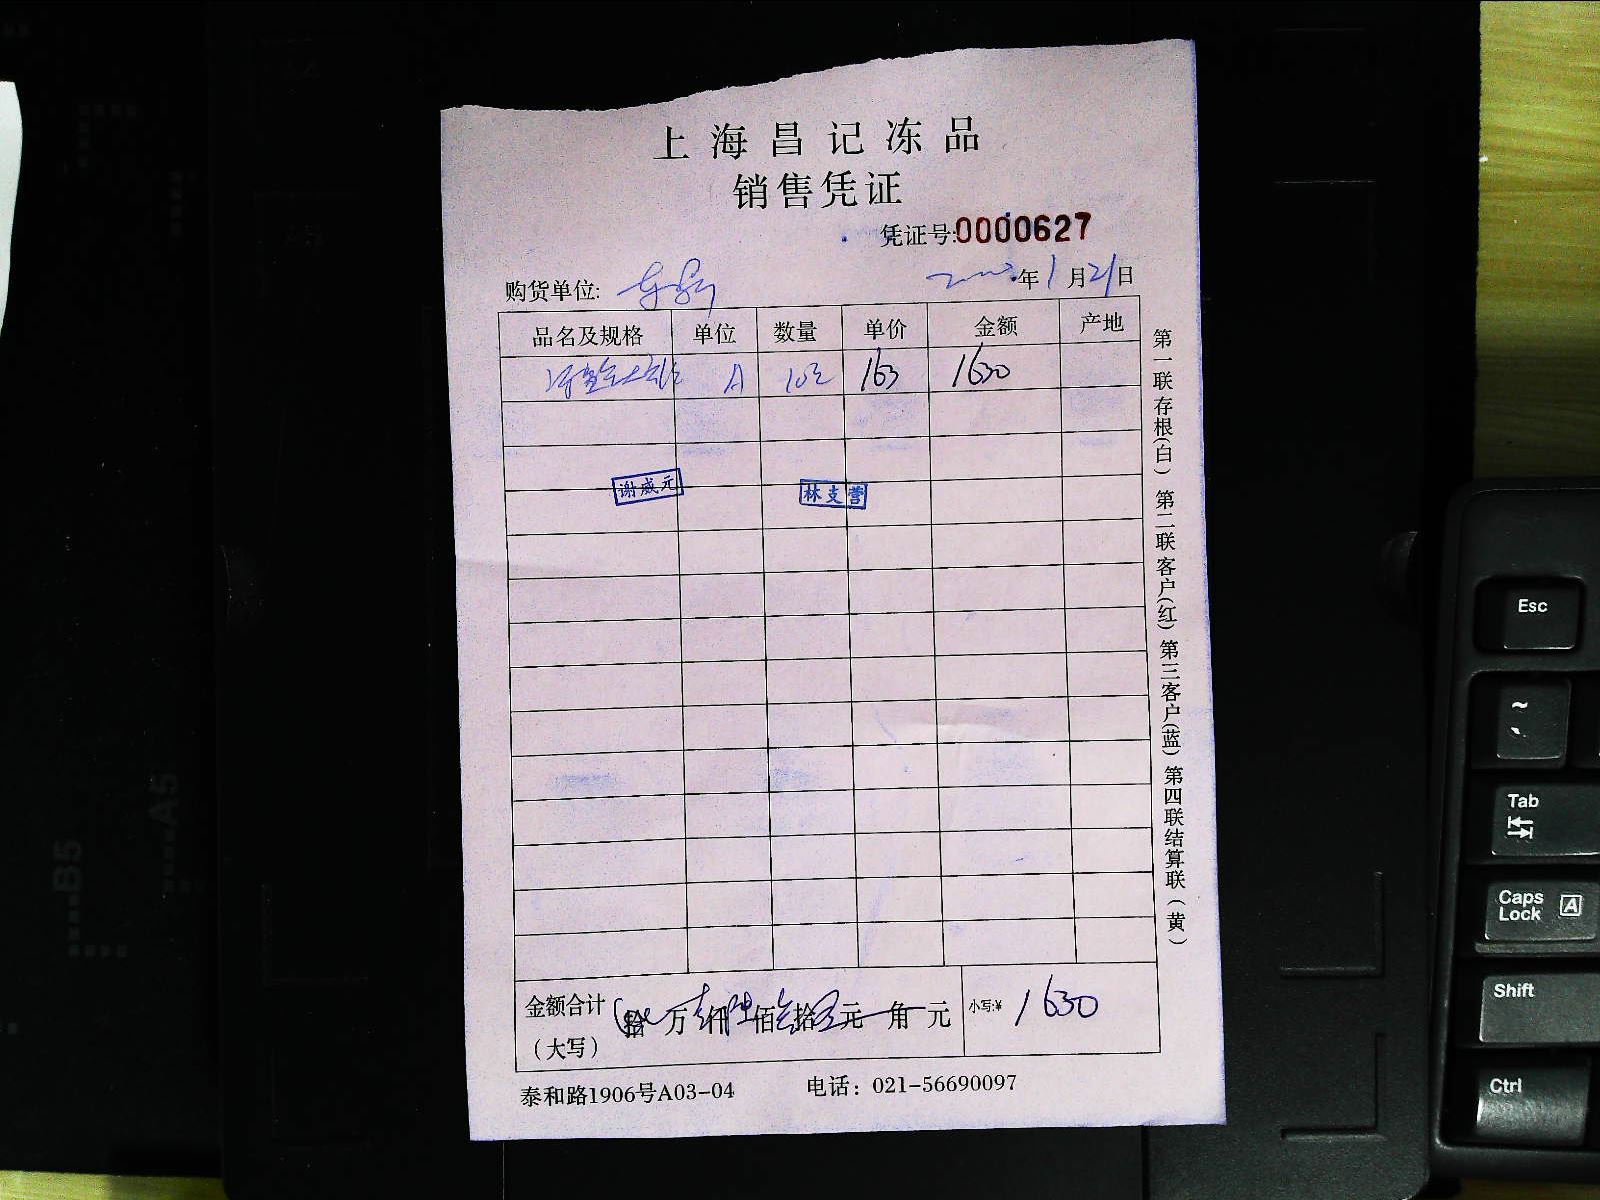 上海昌记冻品
销售凭证
凭证号:0000627
购货单位:
年1月21日
品名及规格 单位 数量 单价 金额 产地
163 1630
谢威元 林支营
金额合计 拾 万 仟 佰 拾 元 角 元 小写:¥ 1630
（大写）
泰和路1906号A03-04 电话：021-56690097
第一联存根(白) 第二联客户(红) 第三客户(蓝) 第四联结算联(黄)
B5
A5
Esc
~
Tab
Caps Lock A
Shift
Ctrl